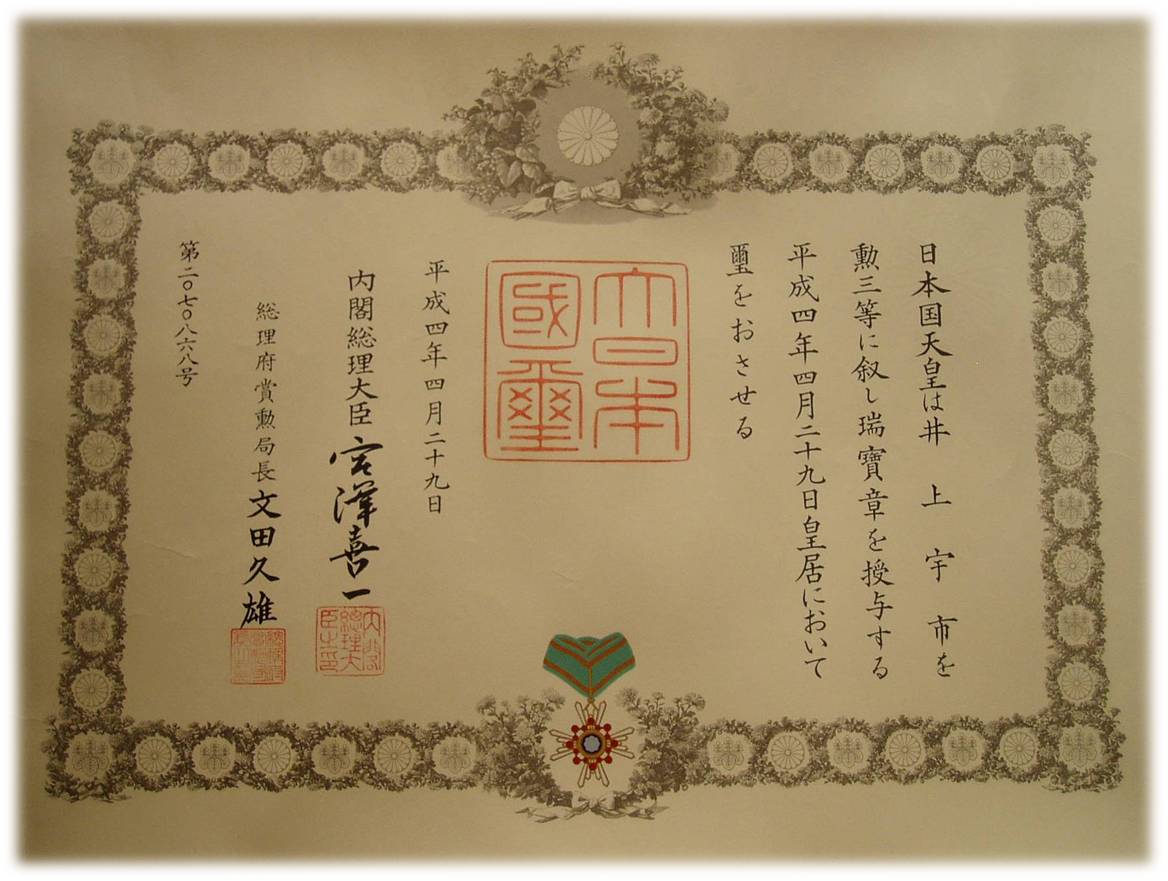 日本国天皇は井上宇市を
勲三等に叙し瑞寶章を授与する
平成四年四月二十九日皇居において
璽をおさせる
大日本國璽
平成四年四月二十九日
内閣総理大臣宮澤喜一
内閣総理大臣之印
総理府賞勲局長文田久雄
第二〇七〇八六八号